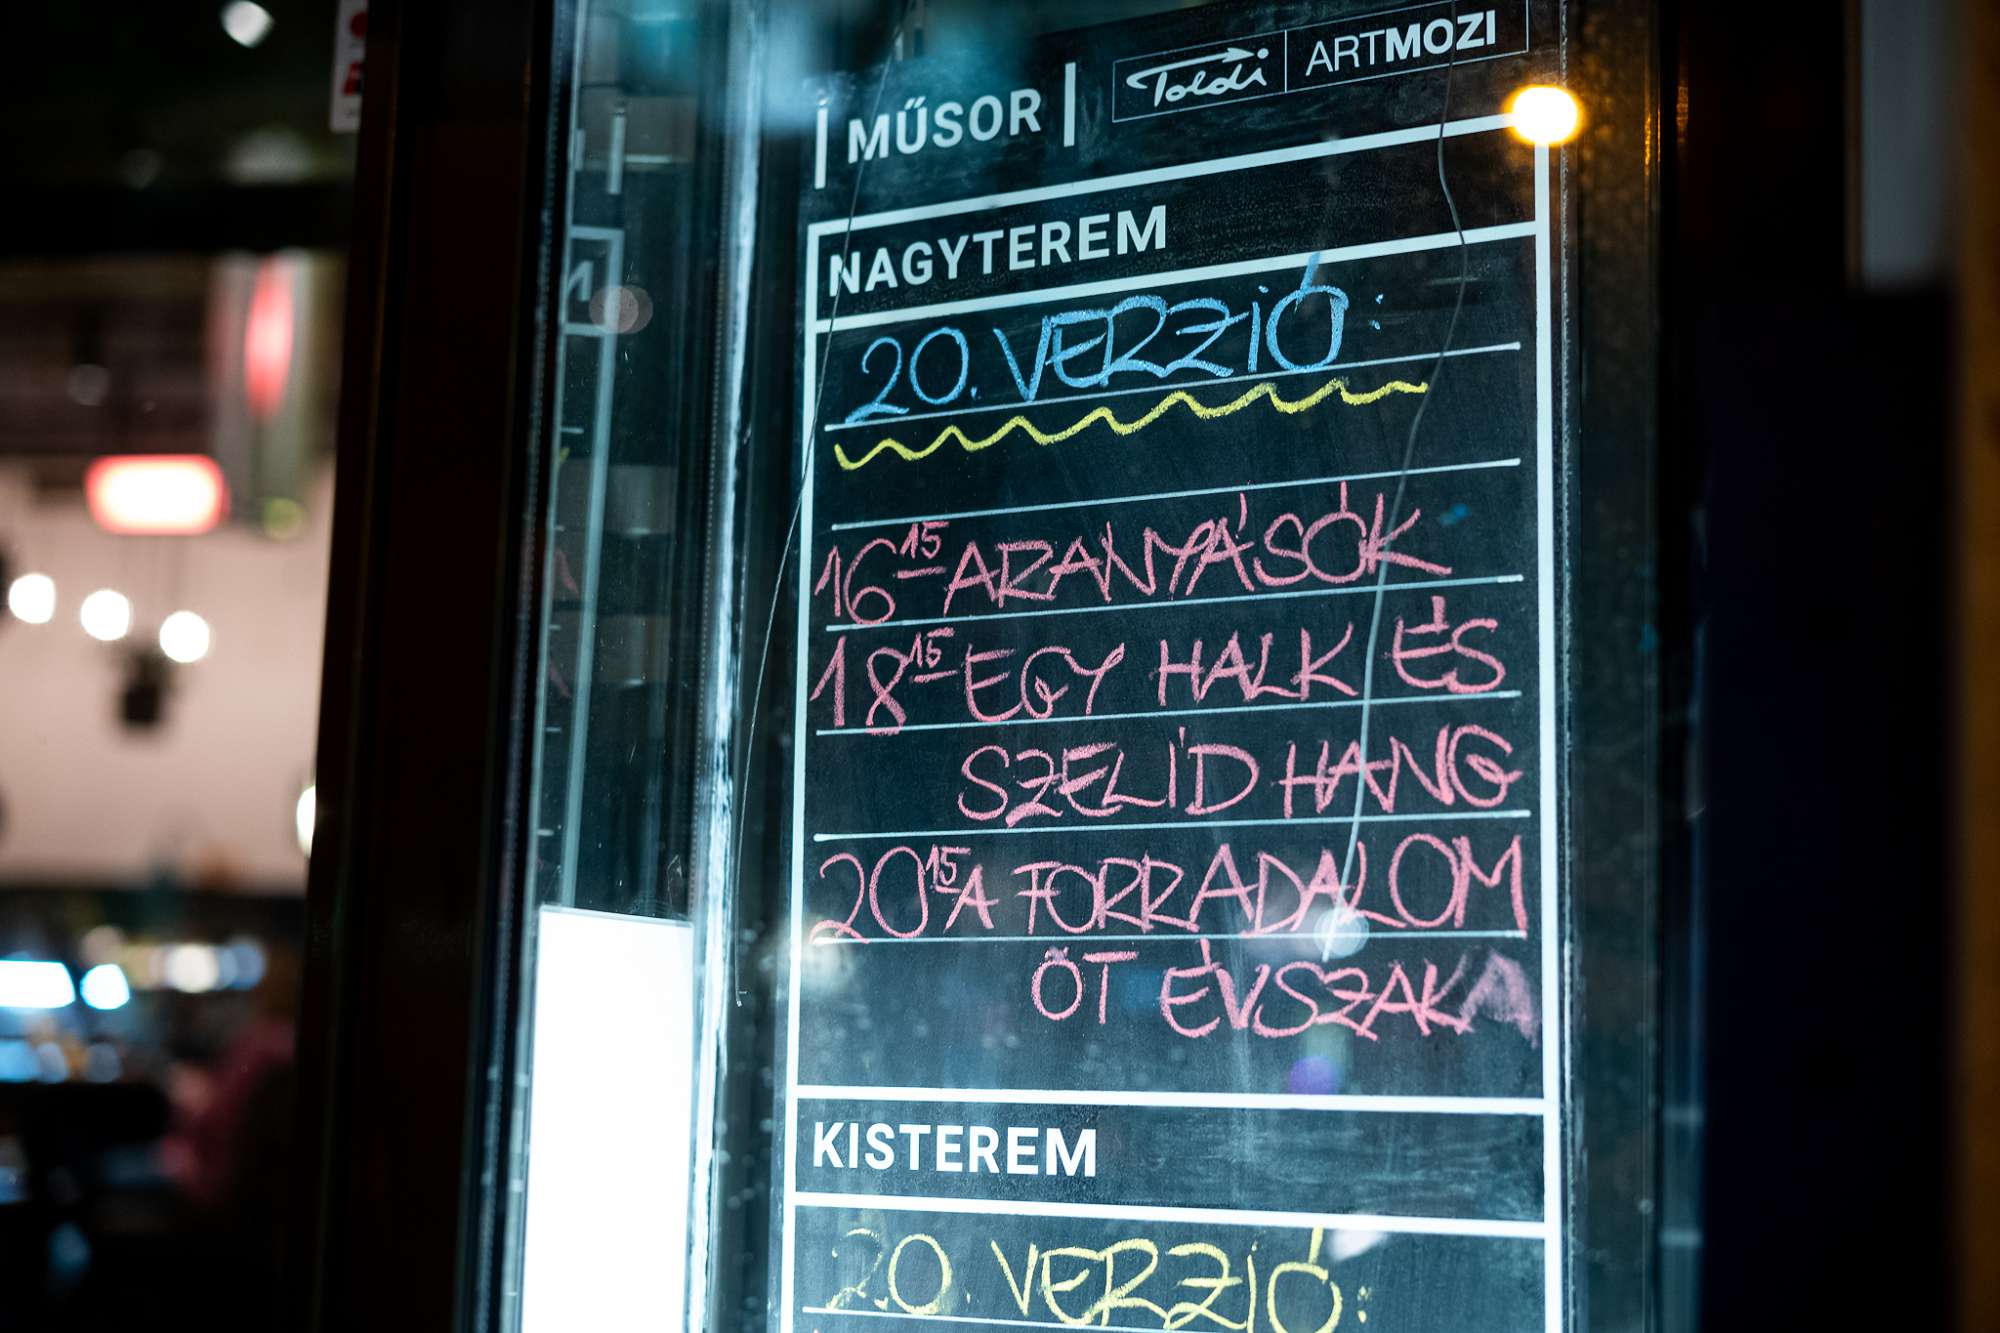 MŰSOR
Toldi ARTMOZI
NAGYTEREM
20. VERZIÓ:
16¹⁵ ARANYÁSÓK
18¹⁵ EGY HALK ÉS
SZELÍD HANG
20¹⁵ A FORRADALOM
ÖT ÉVSZAKA
KISTEREM
20. VERZIÓ: